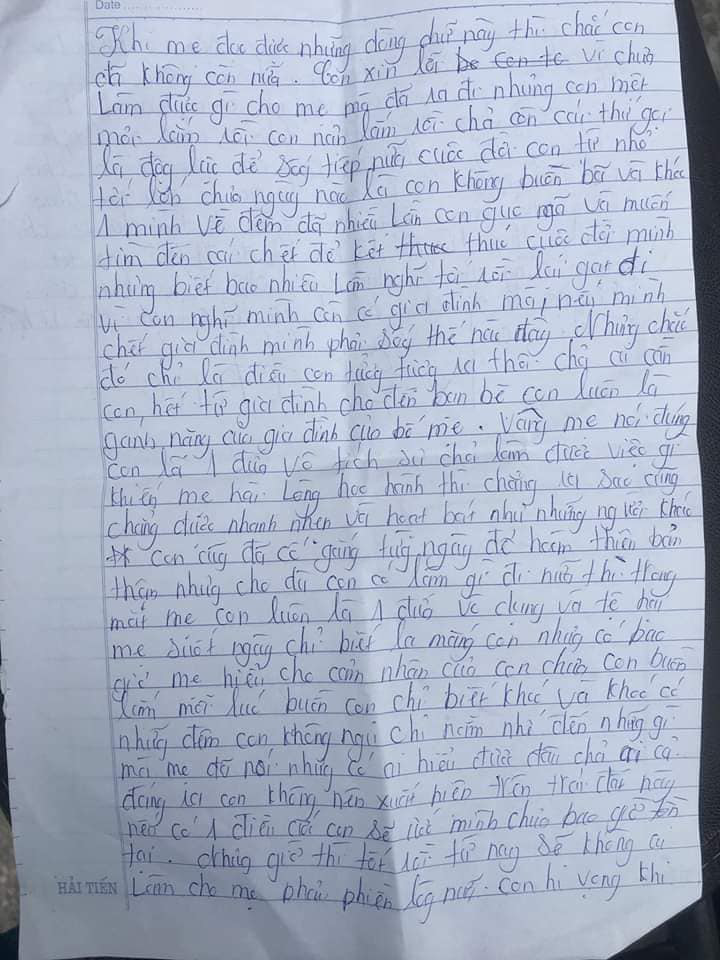 Date
Khi mẹ đọc được những dòng chữ này thì chắc con
đã không còn nữa. Con xin lỗi vì chưa
làm được gì cho mẹ mà đã ra đi nhưng con mệt
mỏi lắm rồi con nản lắm rồi chả còn cái thứ gọi
là động lực để sốg tiếp nữa cuộc đời con từ nhỏ
tới lớn chưa ngày nào là con không buồn bã và khóc
1 mình về đêm đã nhiều lần con gục ngã và muốn
tìm đến cái chết để kết thúc cuộc đời mình
nhưng biết bao nhiêu lần nghĩ tới rồi lại gạt đi
vì con nghĩ mình còn có gia đình mà, nếu mình
chết gia đình mình phải sốg thế nào đây. Nhưng chắc
đó chỉ là điều con tưởng tượng ra thôi chả ai cần
con, hết từ gia đình cho đến bạn bè con luôn là
gánh nặng của gia đình của bố mẹ. Vâng mẹ nói đúng
con là 1 đứa vô tích sự chả làm được việc gì
khiến mẹ hài lòng học hành thì chẳng ra sao cũng
chẳng được nhanh nhẹn và hoạt bát như những người khác
con cũg đã cố gắng từg ngày để hoàn thiện bản
thân nhưg cho dù con có làm gì đi nữa thì trong
mắt mẹ con luôn là 1 đứa vô dụng và tệ hại
mẹ suốt ngày chỉ biết la mắng con nhưg có bao
giờ mẹ hiểu cho cảm nhận của con chưa con buồn
lắm mỗi lúc buồn con chỉ biết khóc và khóc có
những đêm con không ngủ chỉ nằm nhớ đến nhữg gì
mà mẹ đã nói nhưg có ai hiểu được đâu chả ai cả
đáng ra con không nên xuất hiện trên trái đất này
nếu có 1 điều ước con sẽ ước mình chưa bao giờ tồn
tại. Nhưg giờ thì tốt rồi từ nay sẽ không ai
làm cho mẹ phải phiền lòg nữa. Con hi vọng khi
HẢI TIẾN